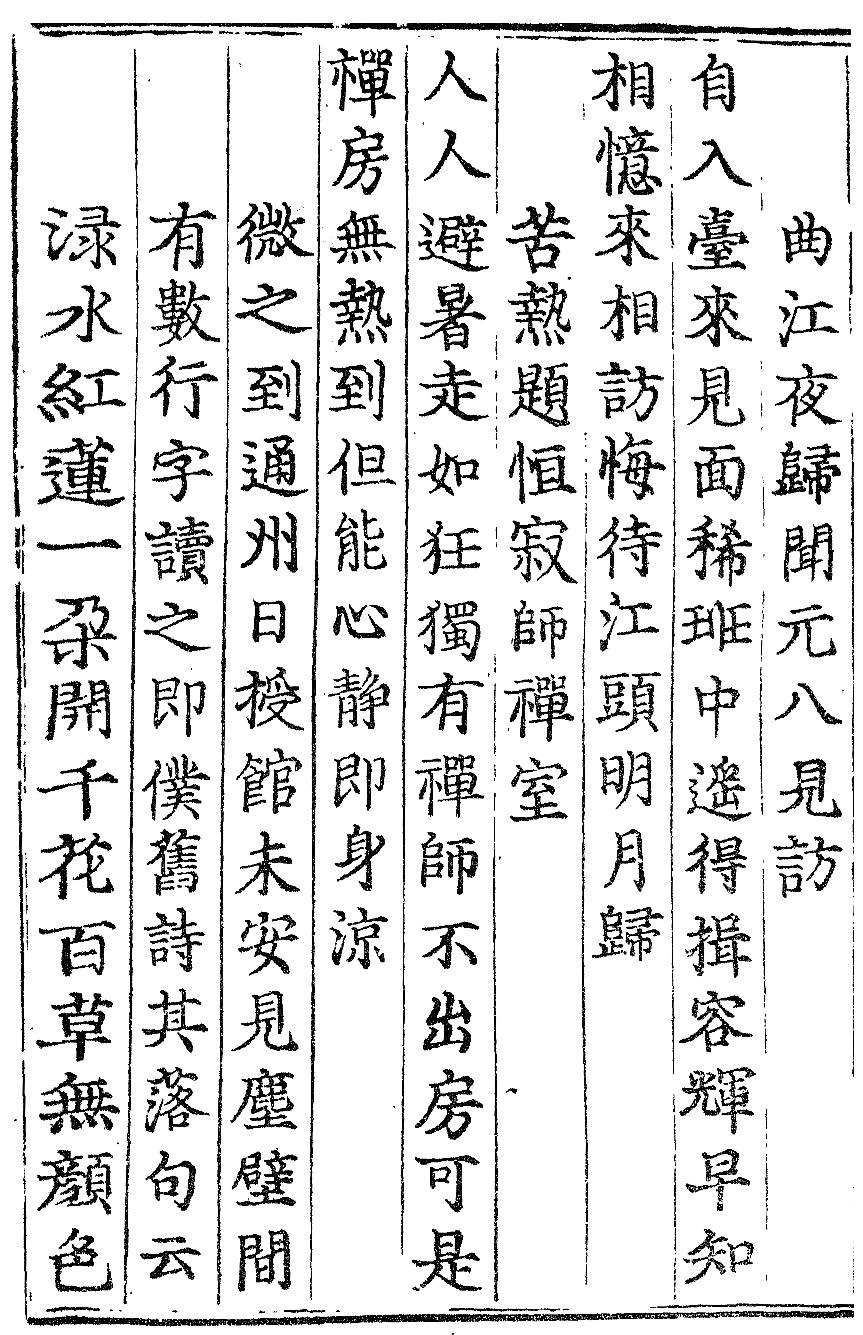 曲江夜歸聞元八見訪
自入臺來見面稀班中遥得揖容輝早知
相憶來相訪悔待江頭明月歸
苦熱題恒寂師禪室
人人避暑走如狂獨有禪師不出房可是
禪房無熱到但能心静即身涼
微之到通州日授館未安見塵壁間
有數行字讀之即僕舊詩其落句云
渌水紅蓮一朶開千花百草無顔色